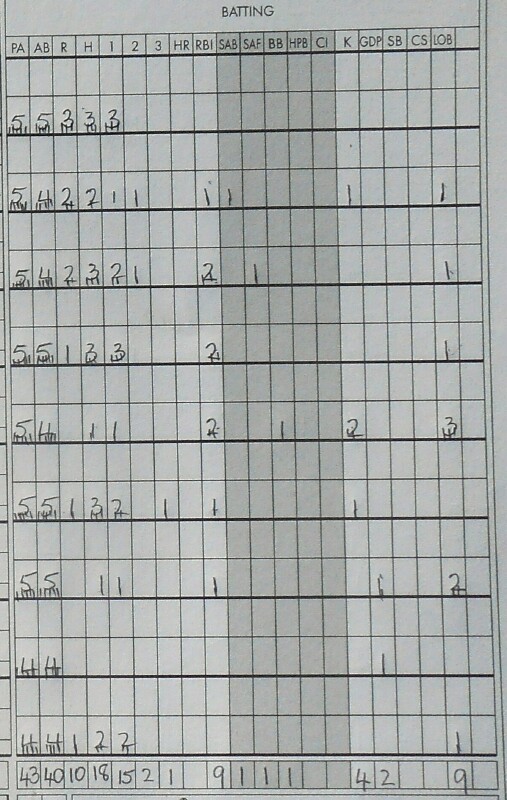 BATTING
PA AB R H 1 2 3 HR RBI SAB SAF BB HPB CI K GDP SB CS LOB
5 5 3 3 3
5 4 2 2 1 1 1 1 1 1
5 4 2 3 2 1 2 1 1
5 5 1 3 3 2 1
5 4 1 1 2 1 2 3
5 5 1 3 2 1 1 1
5 5 1 1 1 1 2
4 4 1
4 4 1 2 2 1
43 40 10 18 15 2 1 9 1 1 1 4 2 9